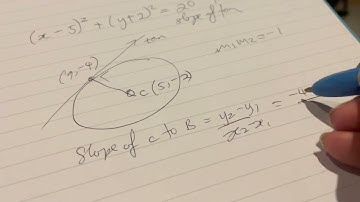 (x - 5)² + (y+2)² = 20
slope of tan
tan
m₁m₂ = -1
(9,-4)
C (5,-2)
Slope of C to B = y₂-y₁ / x₂-x₁ = -4